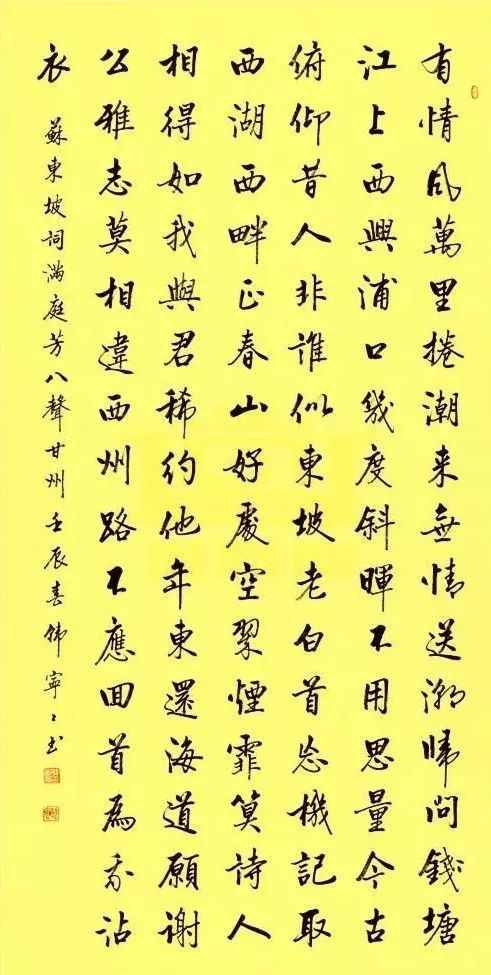 有情风萬里捲潮来無情送潮歸問錢塘
江上西興浦口幾度斜暉不用思量今古
俯仰昔人非誰似東坡老白首忘機記取
西湖西畔正春山好處空翠煙霏算詩人
相得如我與君稀約他年東還海道願謝
公雅志莫相違西州路不應回首為我沾
衣
蘇東坡詞滿庭芳八聲甘州 壬辰春 韩寧〻书